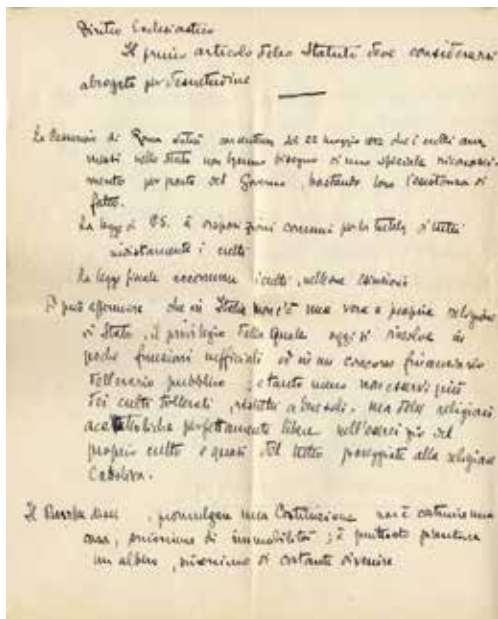 Diritto Ecclesiastico
Il primo articolo dello Statuto deve considerarsi
abrogato per desuetudine
La Cassazione di Roma del 22 maggio che i culti
nello Stato non hanno bisogno di uno speciale riconosci-
mento per parte del Governo, bastando loro l'esistenza di
fatto.
La legge di P.S. à disposizioni comuni per la tutela di tutti
indistintamente i culti
La legge penale accomuna i culti, nelle sue sanzioni
Si può affermare che in Italia non c'è una vera e propria religione
di Stato, il privilegio della quale oggi si risolve in
poche funzioni ufficiali ed in un concorso finanziario
pubblico; e tanto meno non esservi più
dei culti tollerati, ma delle religioni
acattoliche perfettamente libere nell'esercizio del
proprio culto e quasi del tutto pareggiate alla religione
Cattolica.
Il disse, promulgare una Costituzione non è costruire una
casa, sinonimo di immobilità; è piuttosto piantare
un albero, sinonimo di costante divenire